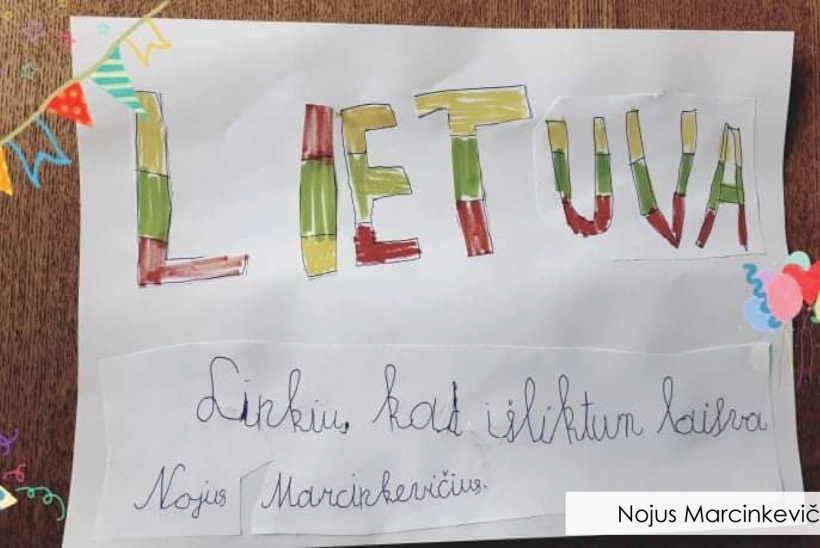 LIETUVA
Linkiu, kad išliktum laisva
Nojus Marcinkevičius.
Nojus Marcinkevič